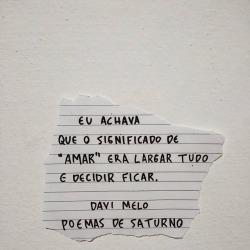 EU ACHAVA
QUE O SIGNIFICADO DE
"AMAR" ERA LARGAR TUDO
E DECIDIR FICAR.
DAVI MELO
POEMAS DE SATURNO